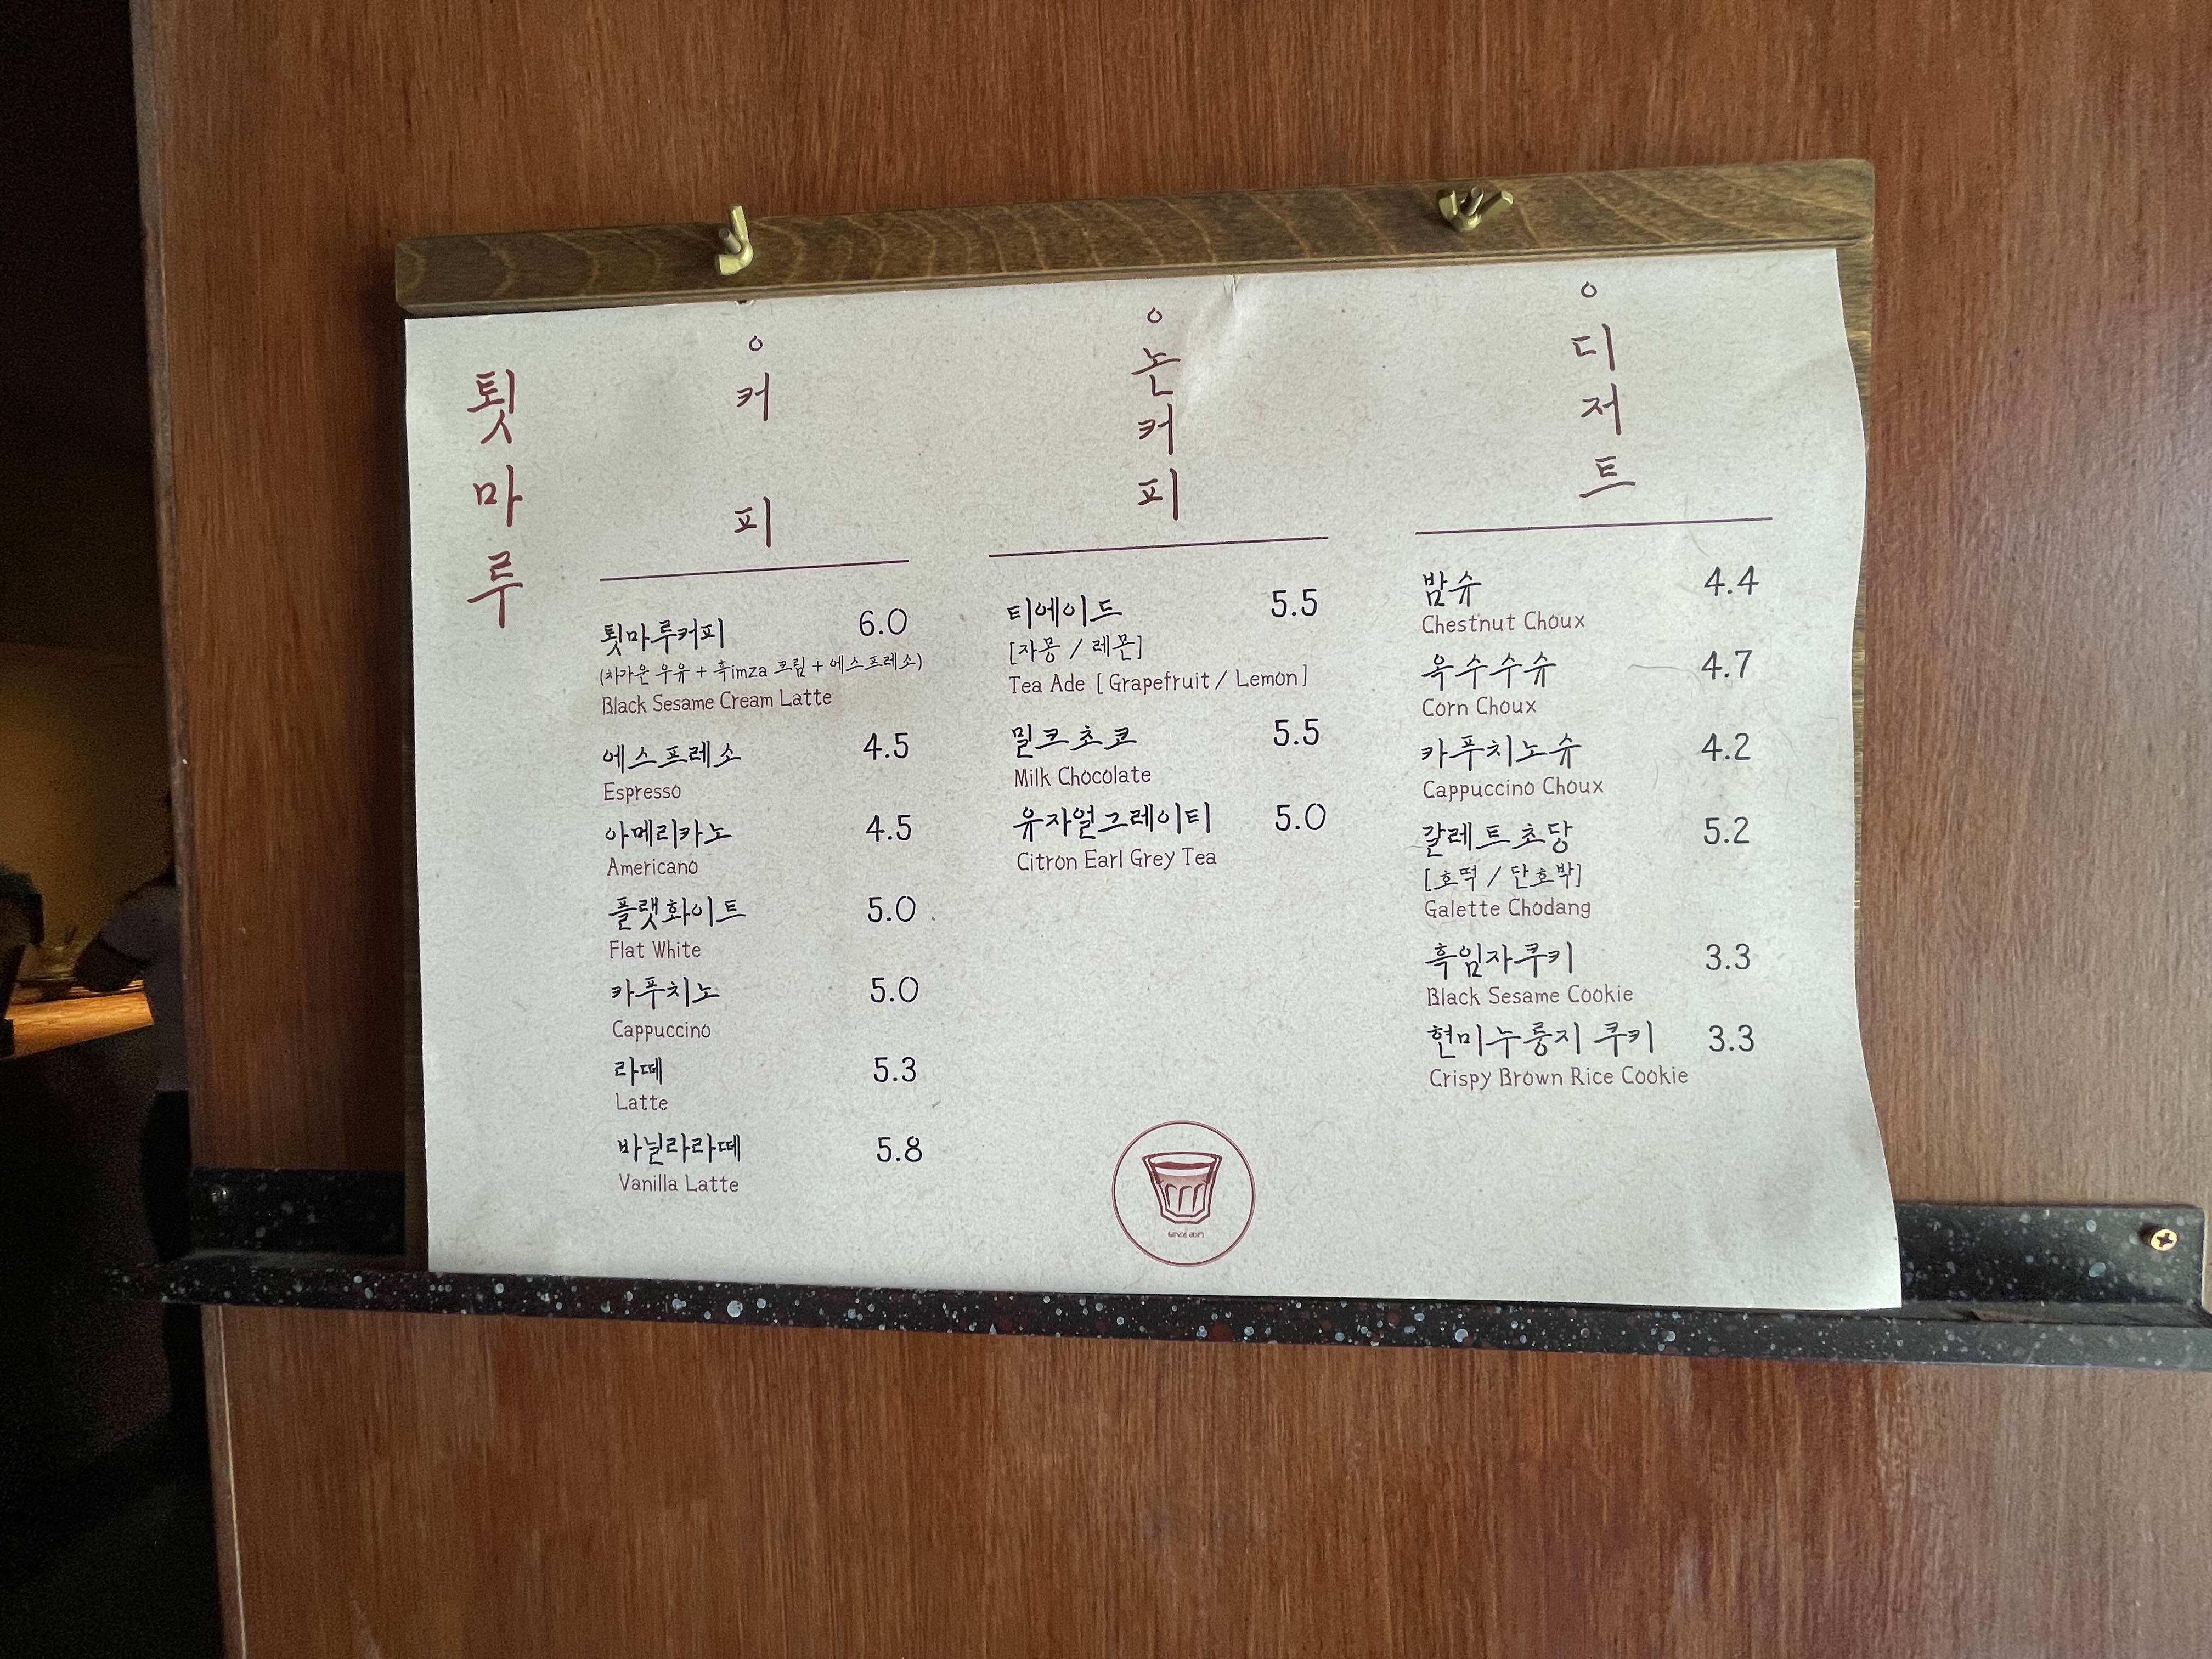 툇마루
커피
툇마루커피 6.0
(차가운 우유 + 흑imza 크림 + 에스프레소)
Black Sesame Cream Latte
에스프레소 4.5
Espresso
아메리카노 4.5
Americano
플랫화이트 5.0
Flat White
카푸치노 5.0
Cappuccino
라떼 5.3
Latte
바닐라라떼 5.8
Vanilla Latte
논커피
티에이드 5.5
[자몽 / 레몬]
Tea Ade [Grapefruit / Lemon]
밀크초코 5.5
Milk Chocolate
유자얼그레이티 5.0
Citron Earl Grey Tea
디저트
밤슈 4.4
Chestnut Choux
옥수수슈 4.7
Corn Choux
카푸치노슈 4.2
Cappuccino Choux
갈레트초당 5.2
[호떡 / 단호박]
Galette Chodang
흑임자쿠키 3.3
Black Sesame Cookie
현미누룽지 쿠키 3.3
Crispy Brown Rice Cookie